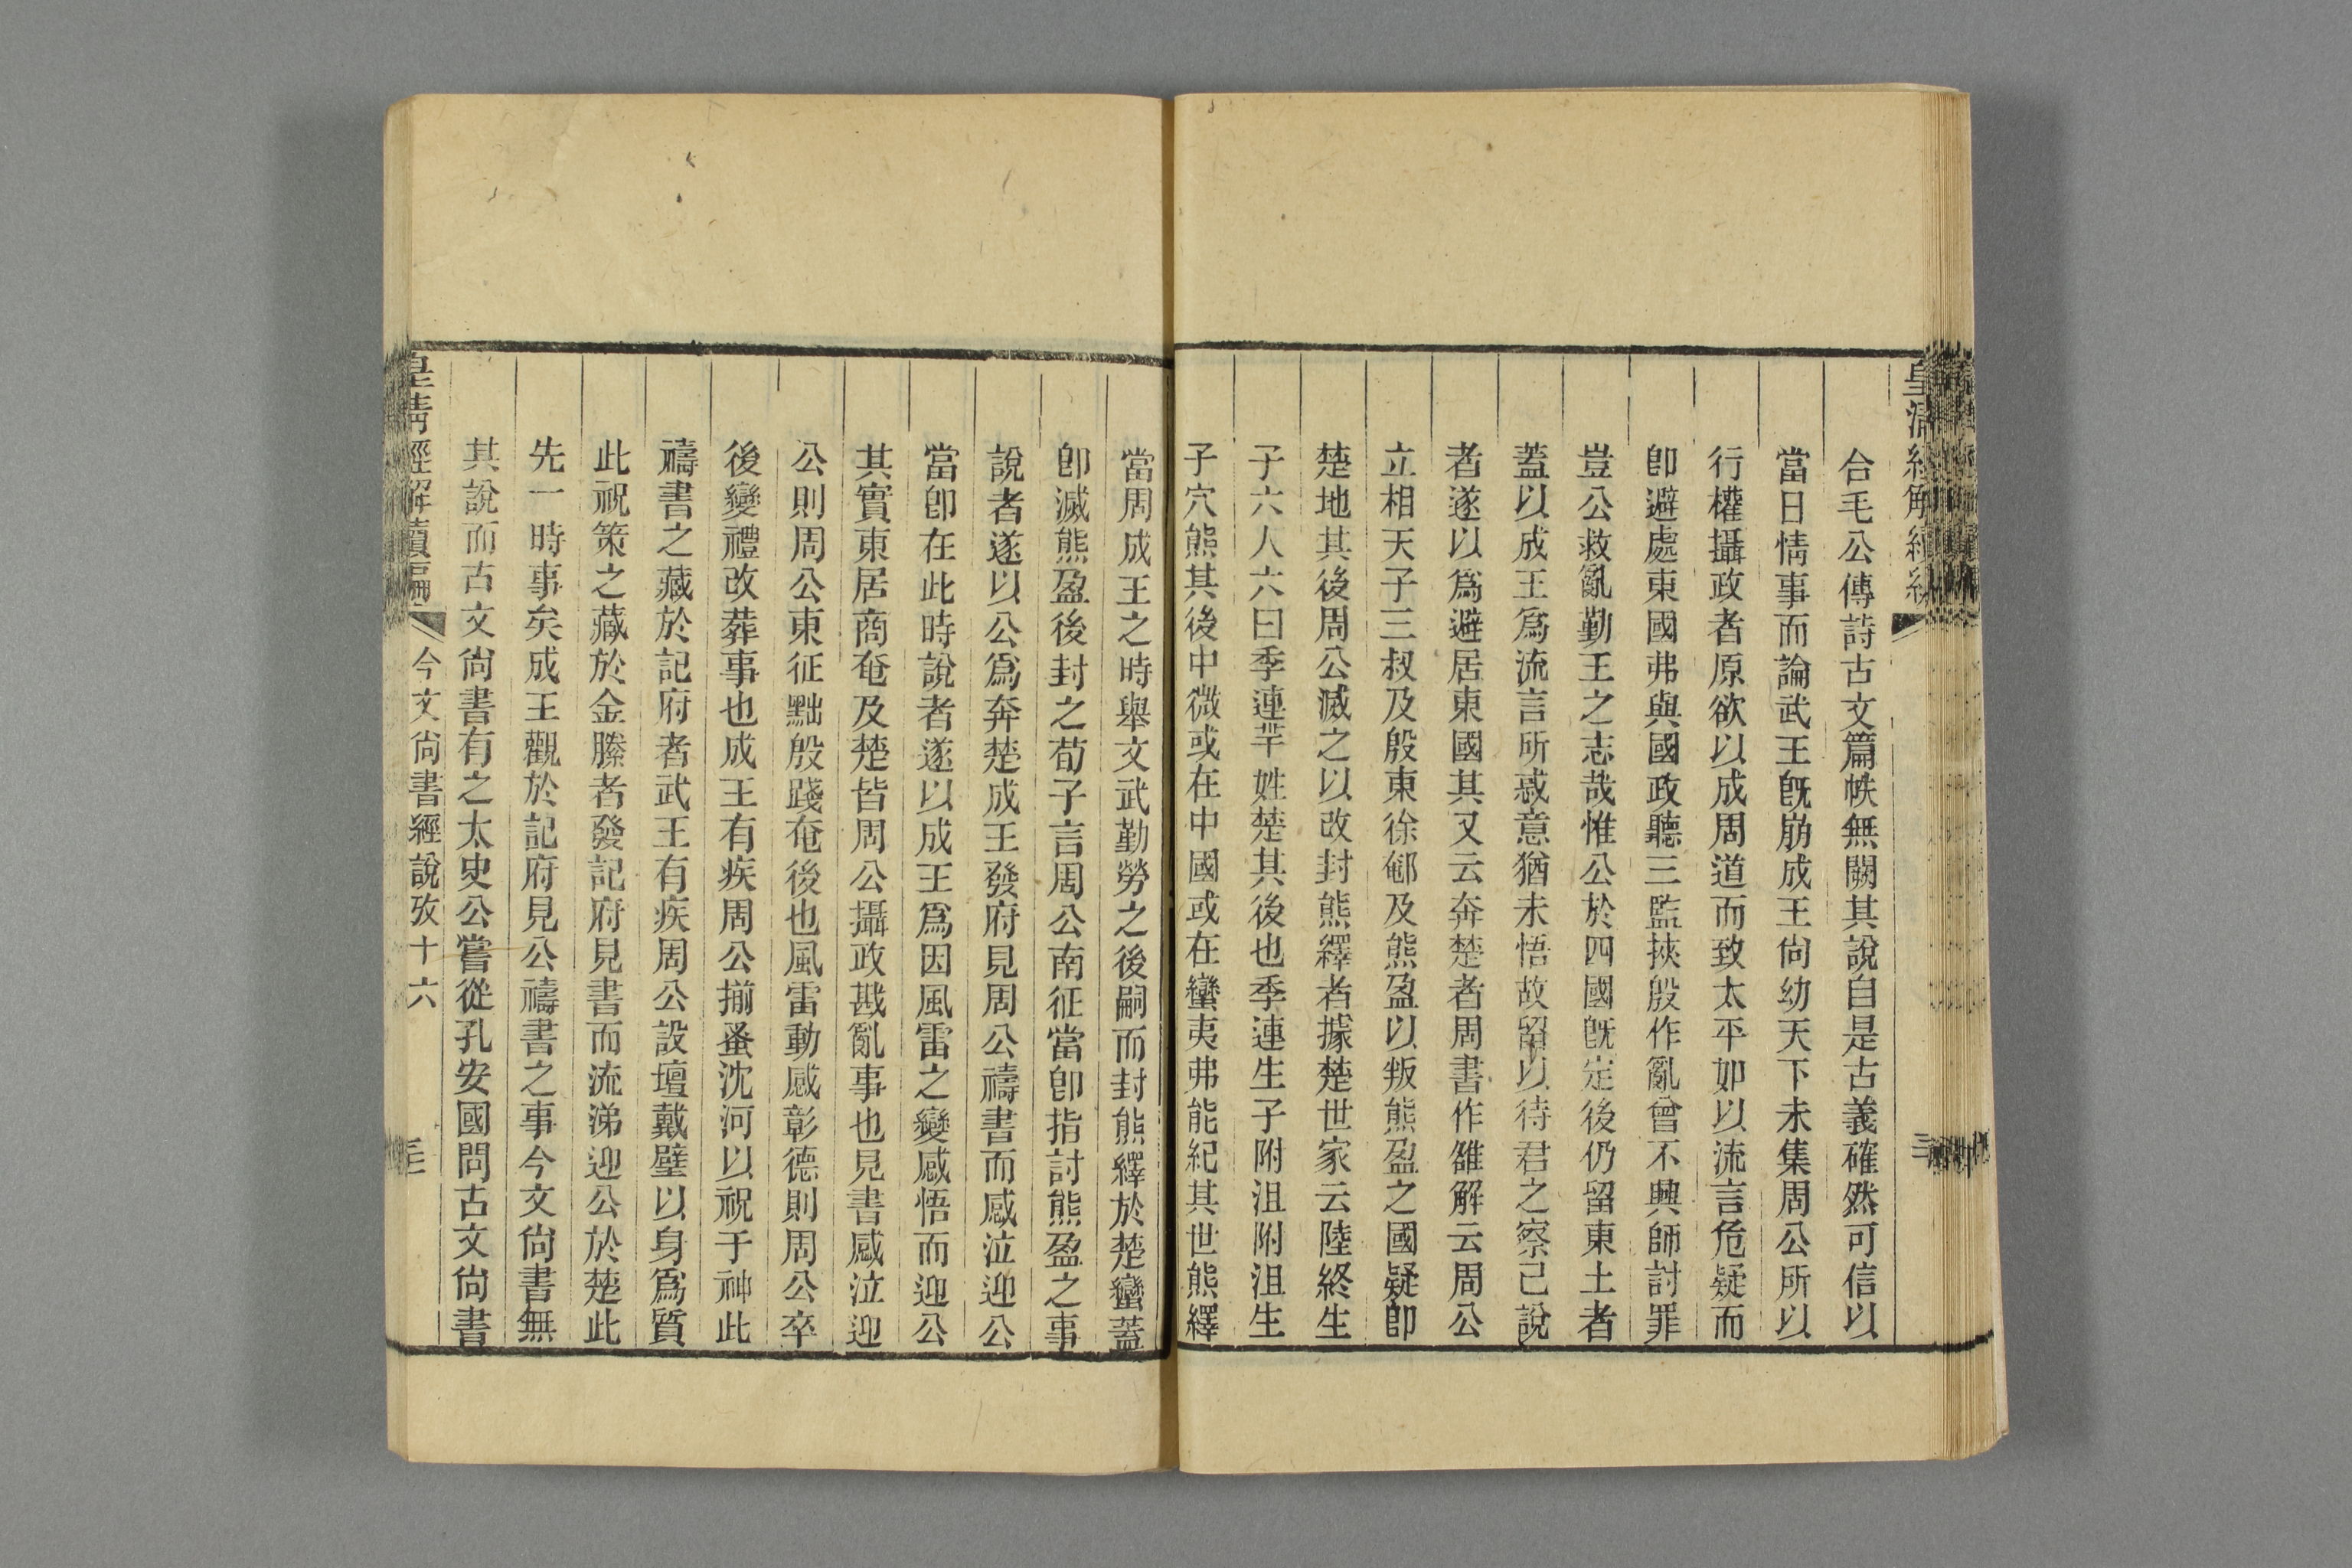 合毛公傳詩古文篇帙無闕其說自是古義確然可信以
當日情事而論武王旣崩成王尙幼天下未集周公所以
行權攝政者原欲以成周道而致太平如以流言危疑而
卽避處東國弗與國政聽三監挾殷作亂曾不興師討罪
豈公救亂勤王之志哉惟公於四國旣定後仍留東土者
蓋以成王爲流言所惑意猶未悟故留以待君之察己說
者遂以爲避居東國其又云奔楚者周書作雒解云周公
立相天子三叔及殷東徐郁及熊盈以叛熊盈之國疑卽
楚地其後周公滅之以改封熊繹者據楚世家云陸終生
子六人六曰季連羋姓楚其後也季連生子附沮附沮生
子穴熊其後中微或在中國或在蠻夷弗能紀其世熊繹
當周成王之時舉文武勤勞之後嗣而封熊繹於楚蠻蓋
卽滅熊盈後封之荀子言周公南征當卽指討熊盈之事
說者遂以公爲奔楚成王發府見周公禱書而感泣迎公
當卽在此時說者遂以成王爲因風雷之變感悟而迎公
其實東居商奄及楚皆周公攝政戡亂事也見書感泣迎
公則周公東征黜殷踐奄後也風雷動感彰德則周公卒
後變禮改葬事也成王有疾周公揃蚤沈河以祝于神此
禱書之藏於記府者武王有疾周公設壇戴璧以身爲質
此祝策之藏於金縢者發記府見書而流涕迎公於楚此
先一時事矣成王觀於記府見公禱書之事今文尙書無
其說而古文尙書有之太史公嘗從孔安國問古文尙書
皇淸經解續編
今文尙書經說攷十六